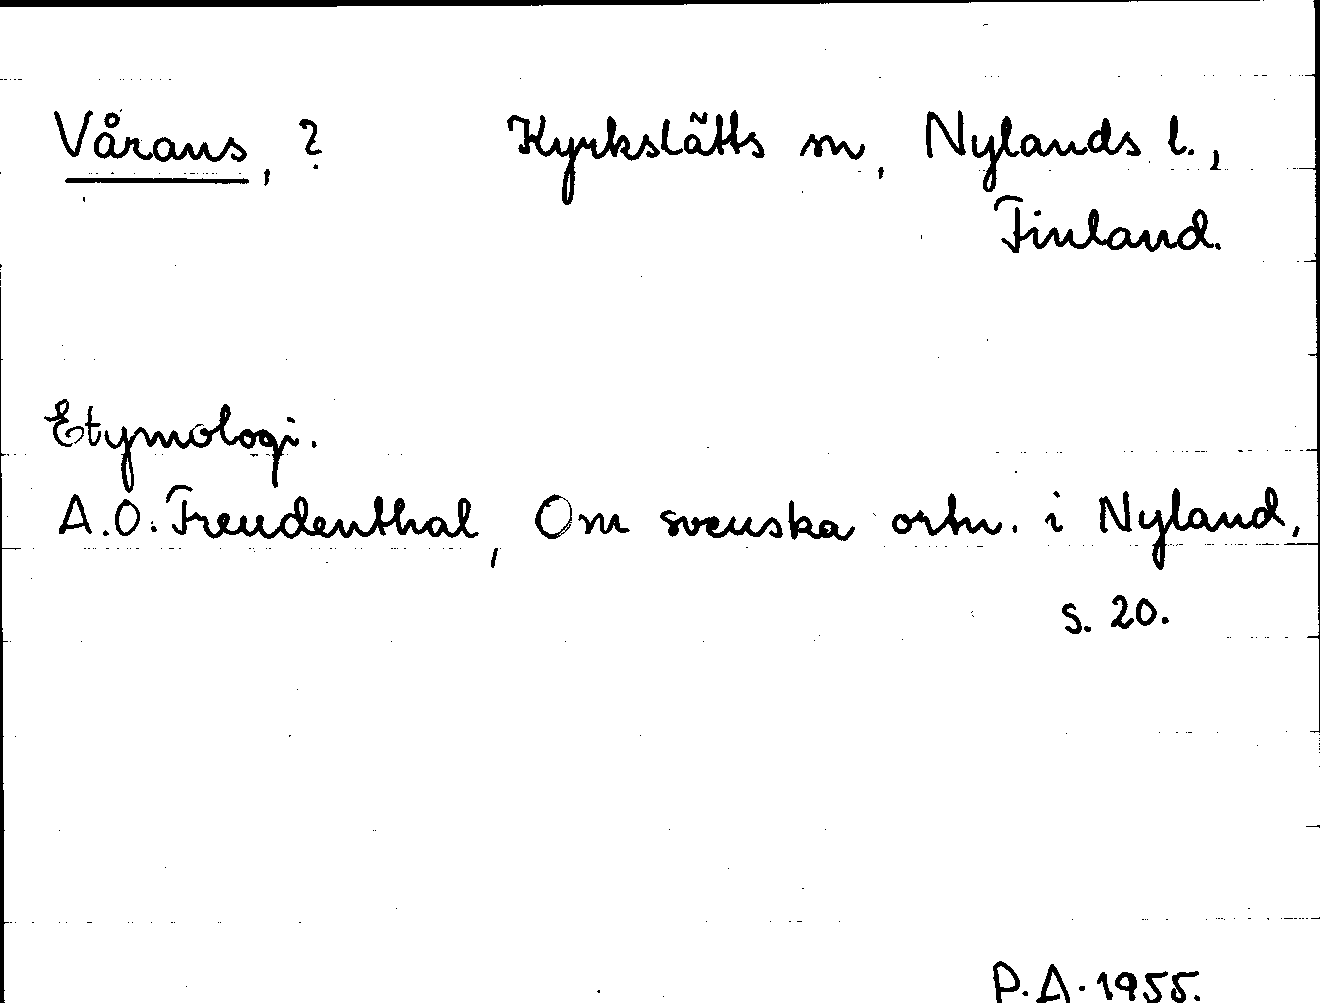 Vårans, ? Kyrkslätts sn, Nylands l.,
Finland.
Etymologi.
A.O. Freudenthal, Om svenska ortn. i Nyland,
s. 20.
P.A. 1955.